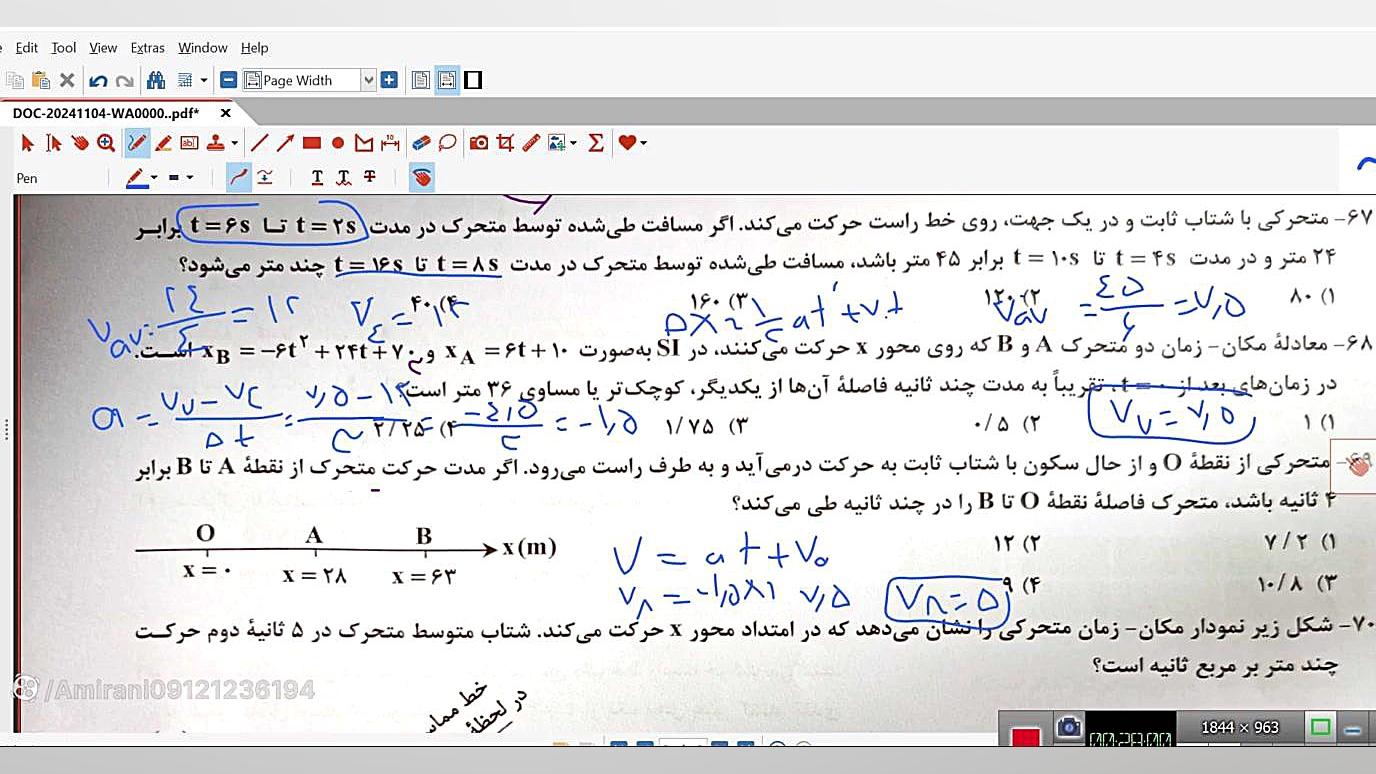 Edit Tool View Extras Window Help
Page Width
DOC-20241104-WA0000..pdf* x
Pen
۶۷- متحرکی با شتاب ثابت و در یک جهت، روی خط راست حرکت می‌کند. اگر مسافت طی‌شده توسط متحرک در مدت t = ۲s تا t = ۶s برابر
۲۴ متر و در مدت t = ۴s تا t = ۱۰s برابر ۴۵ متر باشد، مسافت طی‌شده توسط متحرک در مدت t = ۸s تا t = ۱۶s چند متر می‌شود؟
۱) ۸۰ ۲) ۱۲۰ ۳) ۱۶۰ ۴) ۴۰
Vav = ۲۴/۴ = ۱۲ V۴ = ۱۲ Δx = ½at² + V.t Vav = ۴۵/۶ = ۷,۵
۶۸- معادلهٔ مکان- زمان دو متحرک A و B که روی محور x حرکت می‌کنند، در SI به‌صورت xA = ۶t + ۱۰ و xB = -۶t² + ۲۴t + ۷۰ است.
در زمان‌های بعد از t = ۰، تقریباً به مدت چند ثانیه فاصلهٔ آن‌ها از یکدیگر، کوچک‌تر یا مساوی ۳۶ متر است؟
۱) ۱ ۲) ۰/۵ ۳) ۱/۷۵ ۴) ۲/۲۵
a = V۷ - V۴/Δt = ۷,۵ - ۱۲/۳ = -۴,۵/۳ = -۱,۵ V۷ = ۷,۵
۶۹- متحرکی از نقطهٔ O و از حال سکون با شتاب ثابت به حرکت درمی‌آید و به طرف راست می‌رود. اگر مدت حرکت متحرک از نقطهٔ A تا B برابر
۴ ثانیه باشد، متحرک فاصلهٔ نقطهٔ O تا B را در چند ثانیه طی می‌کند؟
۱) ۷/۲ ۲) ۱۲
۳) ۱۰/۸ ۴) ۹
O A B x(m)
x = ۰ x = ۲۸ x = ۶۳
V = at + V₀
V۸ = -۱,۵×۱ ۷,۵ V۸ = ۵
۷۰- شکل زیر نمودار مکان- زمان متحرکی را نشان می‌دهد که در امتداد محور x حرکت می‌کند. شتاب متوسط متحرک در ۵ ثانیهٔ دوم حرکت
چند متر بر مربع ثانیه است؟
خط مماس
در لحظهٔ
/Amirani09121236194
1844 × 963
00:28:00